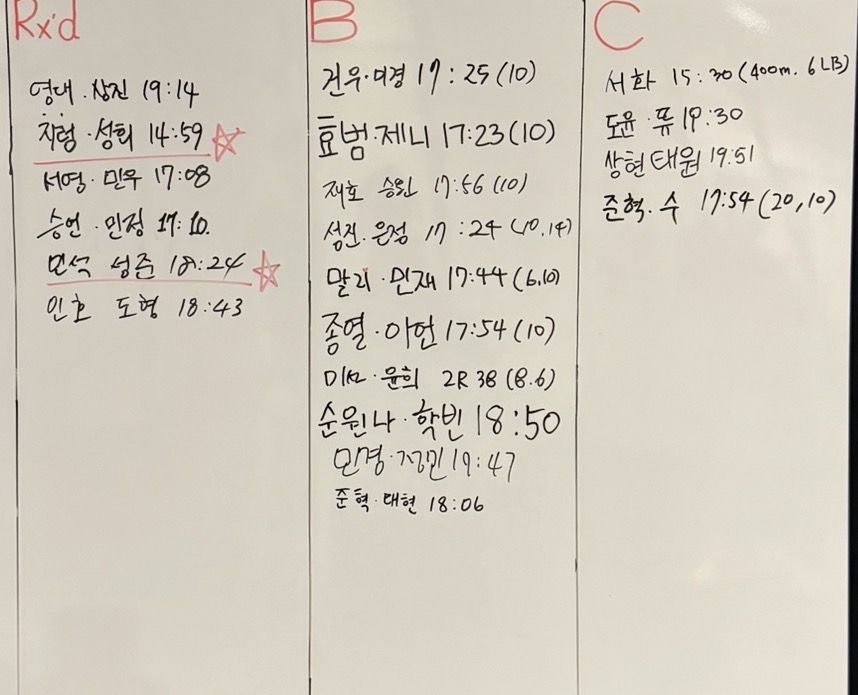 Rx'd
영대 · 상진 19:14
치령 · 성희 14:59
서영 · 민우 17:08
승언 · 민정 17:10.
민석 성준 18:24
인호 도형 18:43
B
건우 · 미경 17:25 (10)
효범 · 제니 17:23 (10)
재호 승완 17:56 (10)
성진. 은정 17:24 (10.14)
말리 · 민재 17:44 (6,10)
종열 · 아언 17:54 (10)
미선 · 윤희 2R 38 (8.6)
순원나 · 학빈 18:50
민경 · 정민 19:47
준혁 · 대현 18:06
C
서화 15:30 (400m. 6LB)
도윤 · 류 19:30
상현 태원 19:51
준혁 · 수 17:54 (20,10)